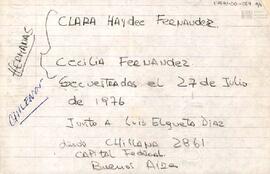 CLARA HAYDEE FERNANDEZ.
HERMANAS
CECILIA FERNANDEZ
CHILENOS
Secuestradas el 27 de Julio
de 1976
Junto a Luis Elgueta Diaz
desde CHILLANA 2861
CAPITAL Federal
Buenos Aires